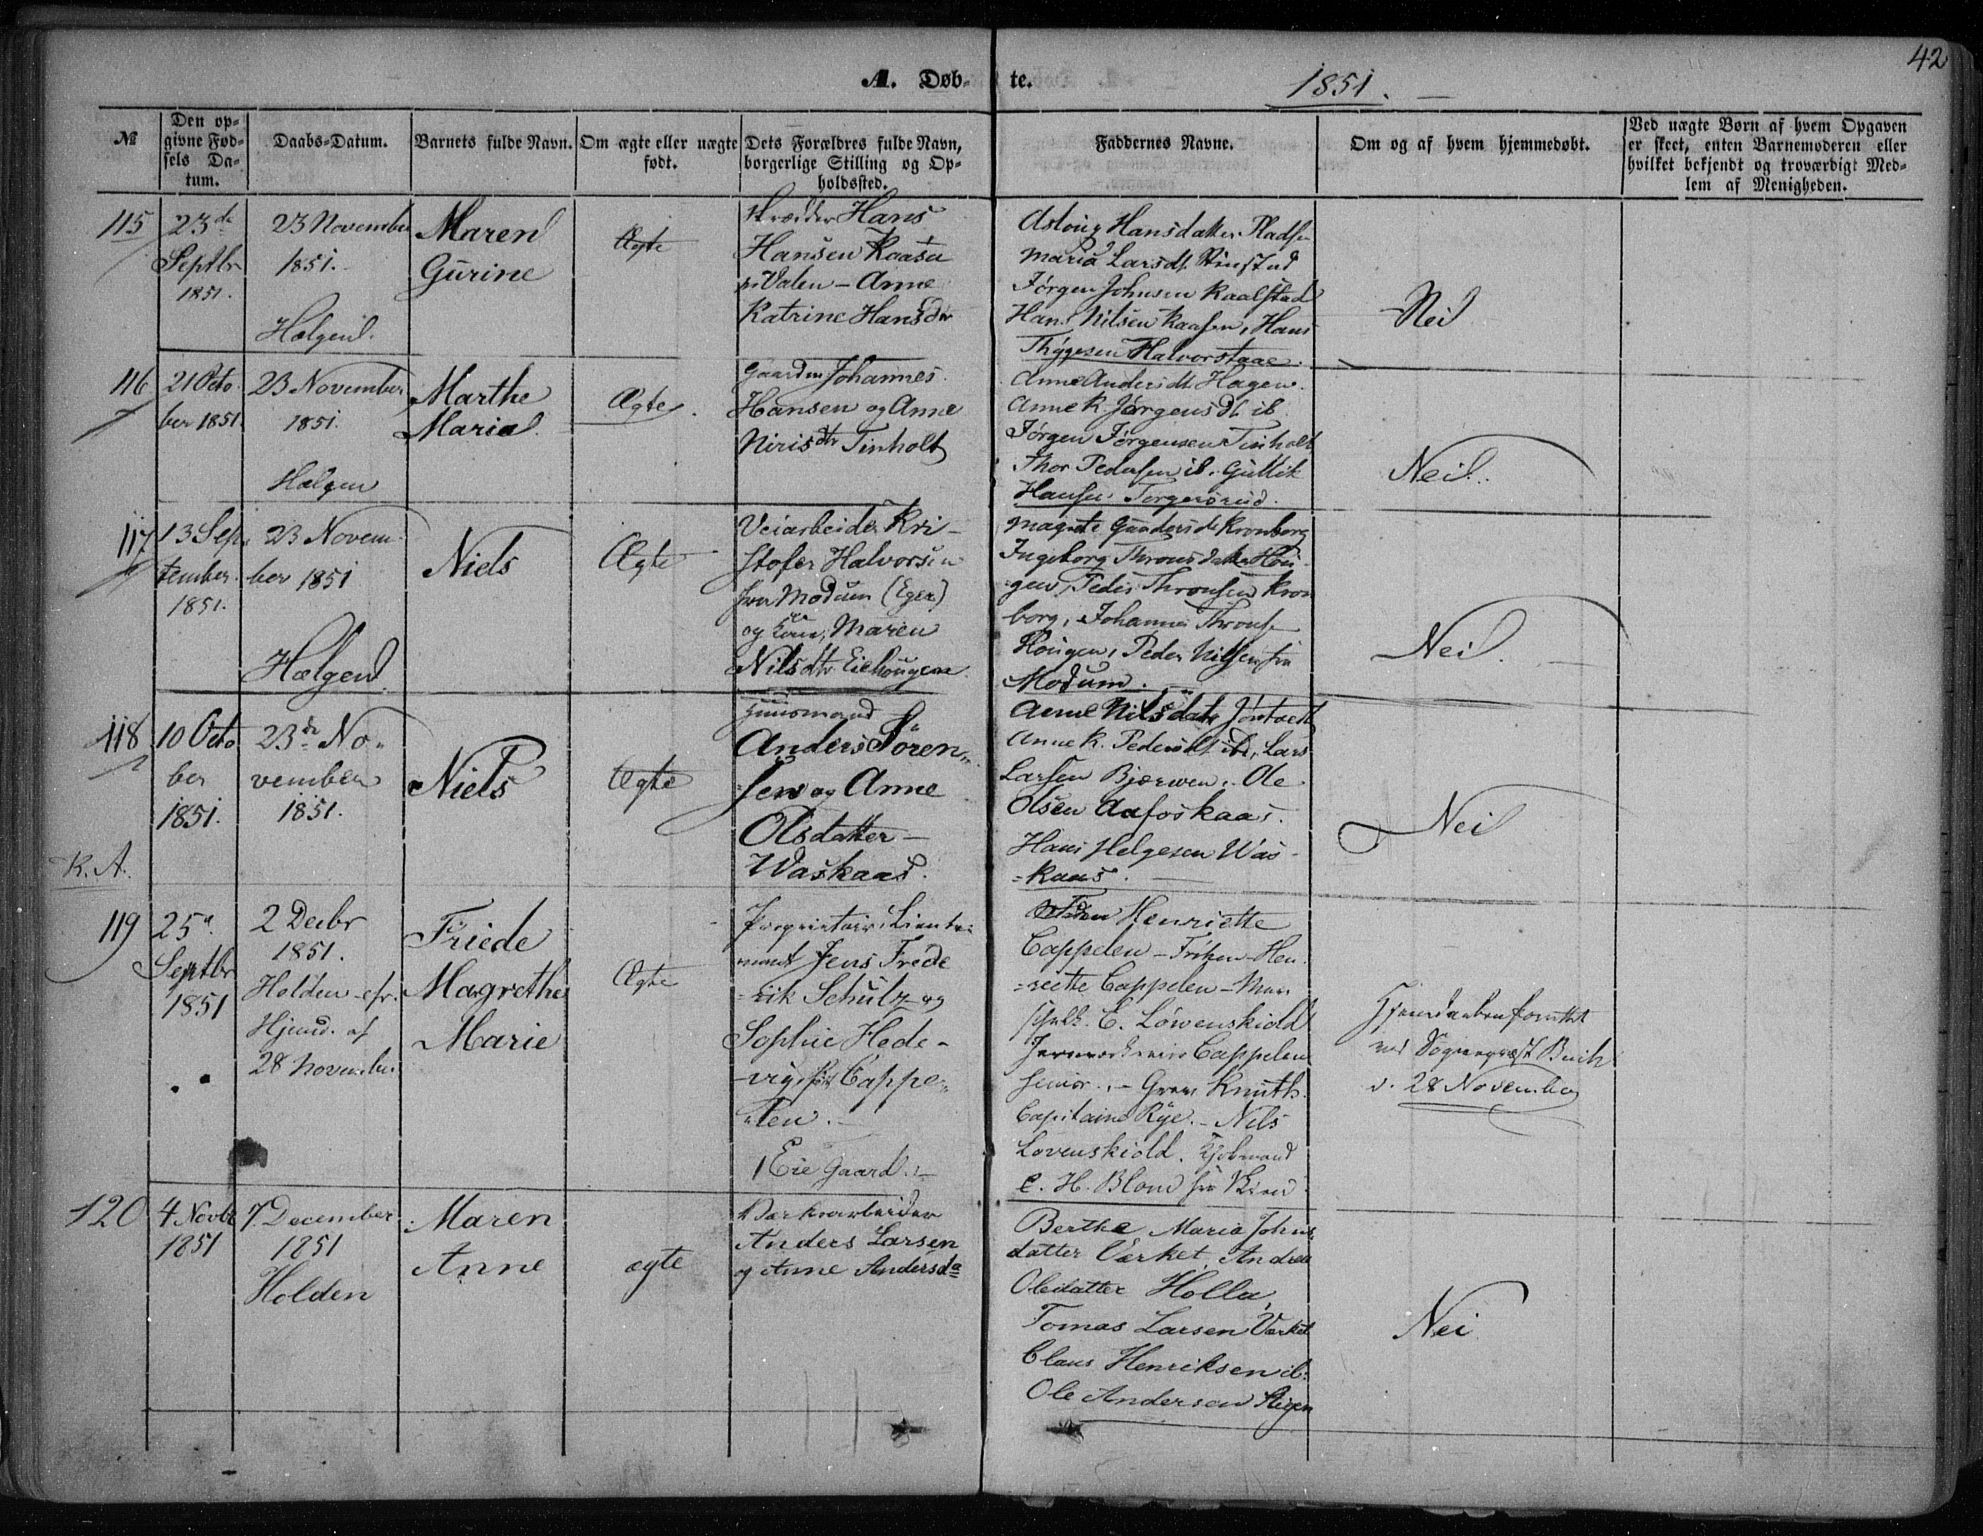 42
A. Døb- te. 1851.
№
Den op-
givne Fød-
sels Da-
tum.
Daabs-Datum.
Barnets fulde Navn.
Om ægte eller uægte
født.
Dets Forældres fulde Navn,
borgerlige Stilling og Op-
holdssted.
Faddernes Navne.
Om og af hvem hjemmedøbt.
Ved uægte Børn af hvem Opgaven
er skeet, enten Barnemoderen eller
hvilket bekjendt og troværdigt Med-
lem af Menigheden.
115
23de
Septbr
1851.
23 November
1851.
Helgen
Maren
Gurine
Ægte
Hans
Hansen Kaasa
Valen - Anne
Katrine Hansdtr
Asloug Hansdatter Pladsen
Maria Larsdt.
Jørgen Johnsen Kaalstad
Hans Nilsen Kaasen, Hans
Thygesen Halvorstaae.
Nei
116
21 Octo
ber 1851.
23 November
1851.
Helgen
Marthe
Maria
Ægte.
Gaardm Johannes
Hansen og Anne
Nirisdtr Tinholt
Anne Andersdt. Hagen.
Anne K. Jørgensdt. ib.
Jørgen Jørgensen Tinholt
Thor Pedersen ib. Gullik
Hansen Torgersrud.
Nei.
117
13 Sep.
tember.
1851.
23 Novem-
ber 1851
Helgen
Niels
Ægte
Veiarbeider Kri-
stofer Halvorsen
fra Modum (Eger)
og Kone, Maren
Nilsdtr Eiehougene.
Kronborg
Ingeborg Thronsdatter Hou-
gen, Peder Thronsen Kron
borg, Johannes Throns.
Hougen, Peder Nilsen fra
Modum.
Nei.
118
10 Octo
ber
1851.
23de No-
vember
1851.
Niels
Ægte
Huusmand
Anders Sören-
sen og Anne
Olsdatter -
Waskaas.
Anne Nilsdatr Jöntvedt
Anne K. Pedersdt. ib., Lars
Larsen Bjerwen, Ole
Olsen Aafoskaas.
Hans Helgesen Was-
=kaas.
Nei
K. A.
119
25de
Septbr
1851
2 Decbr
1851.
Holden efr.
Hjemd. af
28 November
Friede
Magrethe
Marie
Ægte
Proprietair, Lieute-
nant Jens Frede
=rik Schulz og
Sophie Hede-
-vig, fød Cappe-
-len.
Eie Gaard.
Henriette
Cappelen - Frøken Hen-
=riette Cappelen -
E. Löwenskiold
Cappelen
senior. - Knuth.
Capitaine Rye. - Nils
Lovenskiold. Kjøbmand
C. H. Blom fra Skien
Hjemdaaben forrettet
ved Sognepræst Buch
d. 28 November
120
4 Novbr
1851
7. December
1851
Holden
Maren
Anne
ægte
Værksarbeider
Anders Larsen
og Anne Andersda
Berthe Maria Johns
datter Værket, Andrea
Olesdatter Holla,
Tomas Larsen Værket
Claus Henriksen ib:
Ole Anderson
Nei